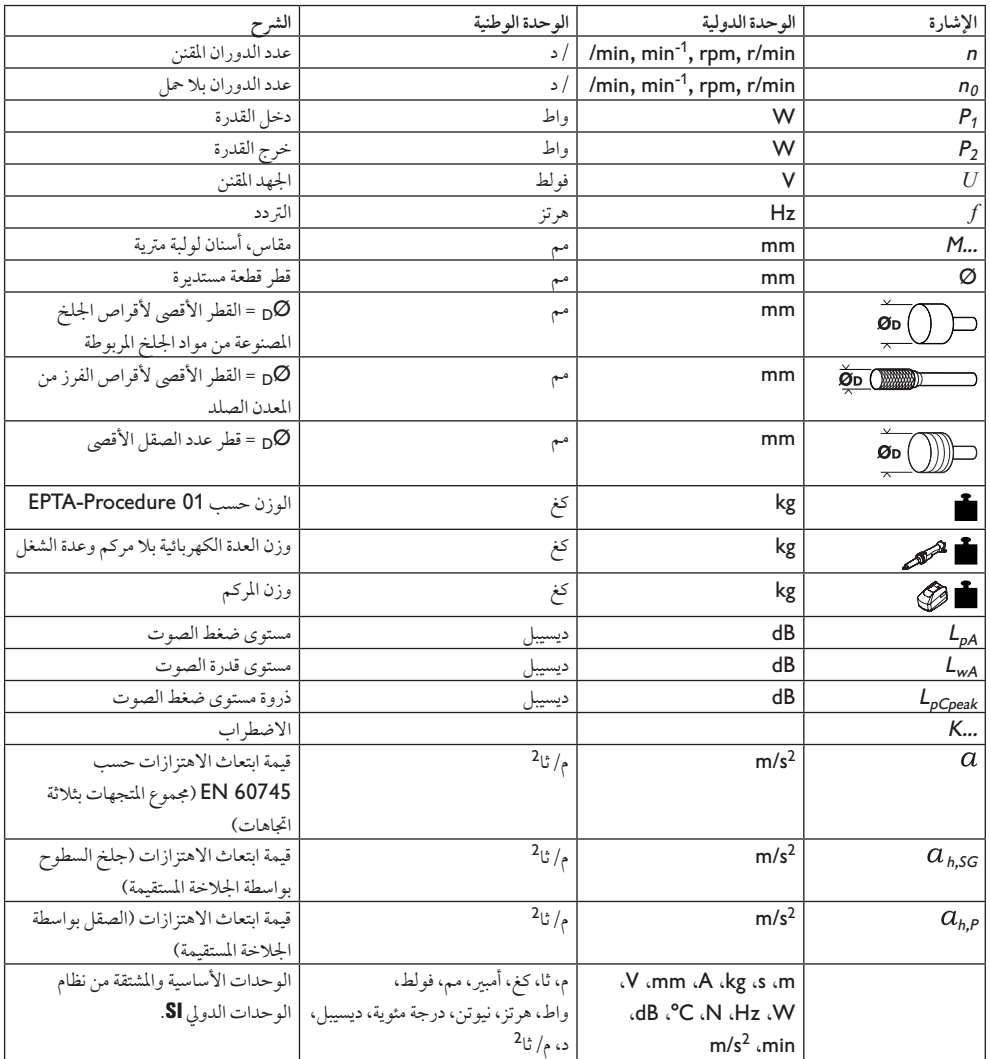 الإشارة الوحدة الدولية الوحدة الوطنية الشرح
n /min, min-1, rpm, r/min / د عدد الدوران المقنن
n0 /min, min-1, rpm, r/min / د عدد الدوران بلا حمل
P1 W واط دخل القدرة
P2 W واط خرج القدرة
U V فولط الجهد المقنن
f Hz هرتز التردد
M... mm مم مقاس، أسنان لولبة مترية
Ø mm مم قطر قطعة مستديرة
ØD mm مم ØD = القطر الأقصى لأقراص الجلخ
المصنوعة من مواد الجلخ المربوطة
ØD mm مم ØD = القطر الأقصى لأقراص الفرز من
المعدن الصلد
ØD mm مم ØD = قطر عدد الصقل الأقصى
kg كغ الوزن حسب EPTA-Procedure 01
kg كغ وزن العدة الكهربائية بلا مركم وعدة الشغل
kg كغ وزن المركم
LpA dB ديسيبل مستوى ضغط الصوت
LwA dB ديسيبل مستوى قدرة الصوت
LpCpeak dB ديسيبل ذروة مستوى ضغط الصوت
K... الاضطراب
a m/s2 م/ ثا2 قيمة ابتعاث الاهتزازات حسب
EN 60745 (مجموع المتجهات بثلاثة
اتجاهات)
ah,SG m/s2 م/ ثا2 قيمة ابتعاث الاهتزازات (جلخ السطوح
بواسطة الجلاخة المستقيمة)
ah,P m/s2 م/ ثا2 قيمة ابتعاث الاهتزازات (الصقل بواسطة
الجلاخة المستقيمة)
m، s، kg، A، mm، V، م، ثا، كغ، أمبير، مم، فولط، الوحدات الأساسية والمشتقة من نظام
W، Hz، N، °C، dB، واط، هرتز، نيوتن، درجة مئوية، ديسيبل، الوحدات الدولي SI.
min، m/s2 د، م/ ثا2